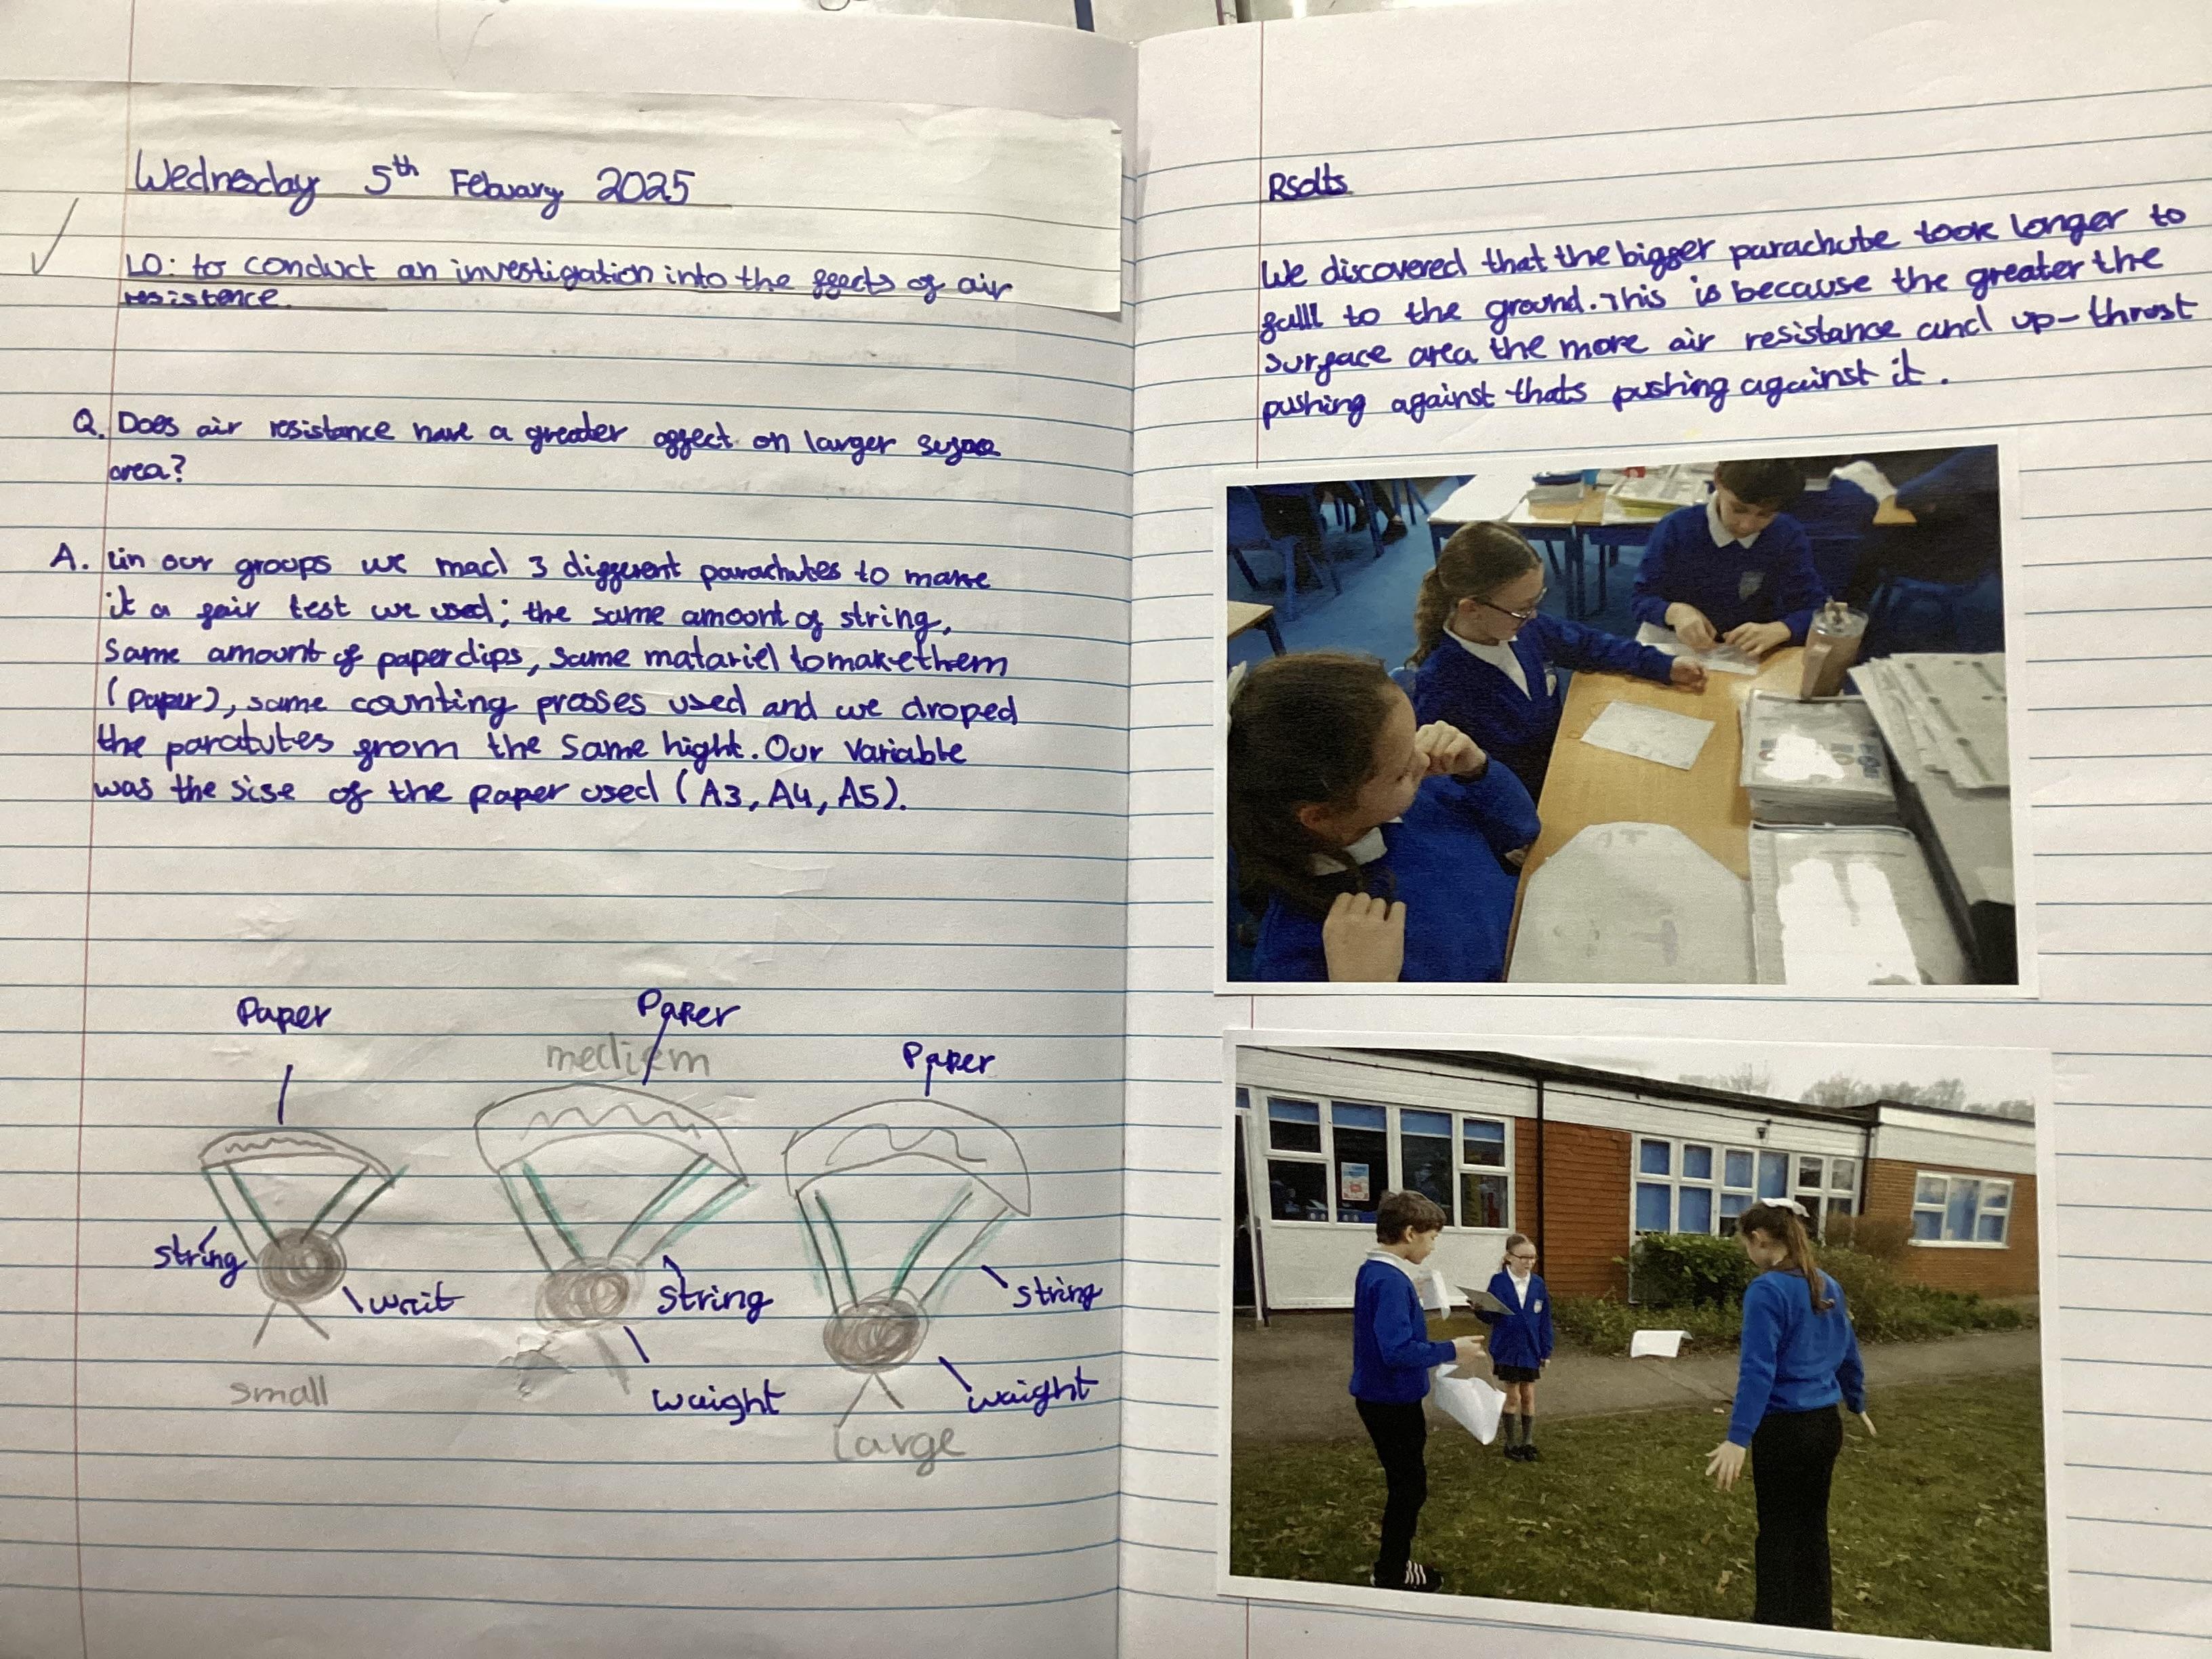 Wednesday 5th Febuary 2025
LO: to conduct an investigation into the effects of air
resistence.
Q. Does air resistance have a greater affect on larger
area?
A. in our groups we mad 3 different parachutes to make
it a fair test we used; the same amount of string,
Same amount of paperclips, same matariel to make them
(paper), same counting prosses used and we droped
the paratutes from the same hight. Our variable
was the sise of the paper used (A3, A4, A5).
Paper
Paper
medium
Paper
string
wait
string
string
small
waight
waight
large
Rsolts
We discovered that the bigger parachute took longer to
falll to the ground. This is because the greater the
surface area the more air resistance and up-thrust
pushing against thats pushing against it.